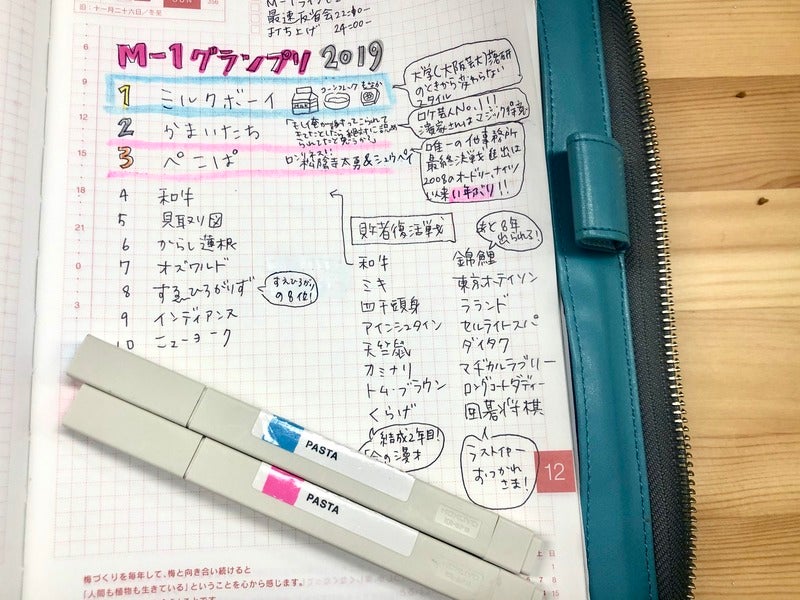 旧:十一月二十六日/冬至
SUN
356
最速反省会
打ち上げ 24:00-
M-1グランプリ 2019
1 ミルクボーイ
MILK
コーンフレーク
もなか
大学(大阪芸大)落研
のときから変わらない
スタイル
2 かまいたち
「もし俺が謝ってこられて
きてたとしたら絶対に認め
られてたと思うか?」
ロケ芸人No.1!!
濱家さんはマジック
3 ぺこぱ
松陰寺太勇&シュウペイ
唯一の他事務所
最終決戦進出は
2008のオードリー,ナイツ
以来11年ぶり!!
4 和牛
5 見取り図
6 からし蓮根
7 オズワルド
8 すゑひろがりず
すゑひろがり
の8位!
9 インディアンス
10 ニューヨーク
敗者復活戦
和牛
ミキ
四千頭身
アインシュタイン
天竺鼠
カミナリ
トム・ブラウン
くらげ
結成2年目!
の漫才
あと8年
出られる!
錦鯉
東京ホテイソン
ラランド
セルライトスパ
ダイタク
マヂカルラブリー
ロングコートダディ
囲碁将棋
ラストイヤー
おつかれ
さま!
6
9
12
15
18
21
0
3
6
PASTA
PASTA
12
土 日
1
7 8
梅づくりを毎年して、梅と向き合い続けると
「人間も植物も生きている」ということを心から感じます。